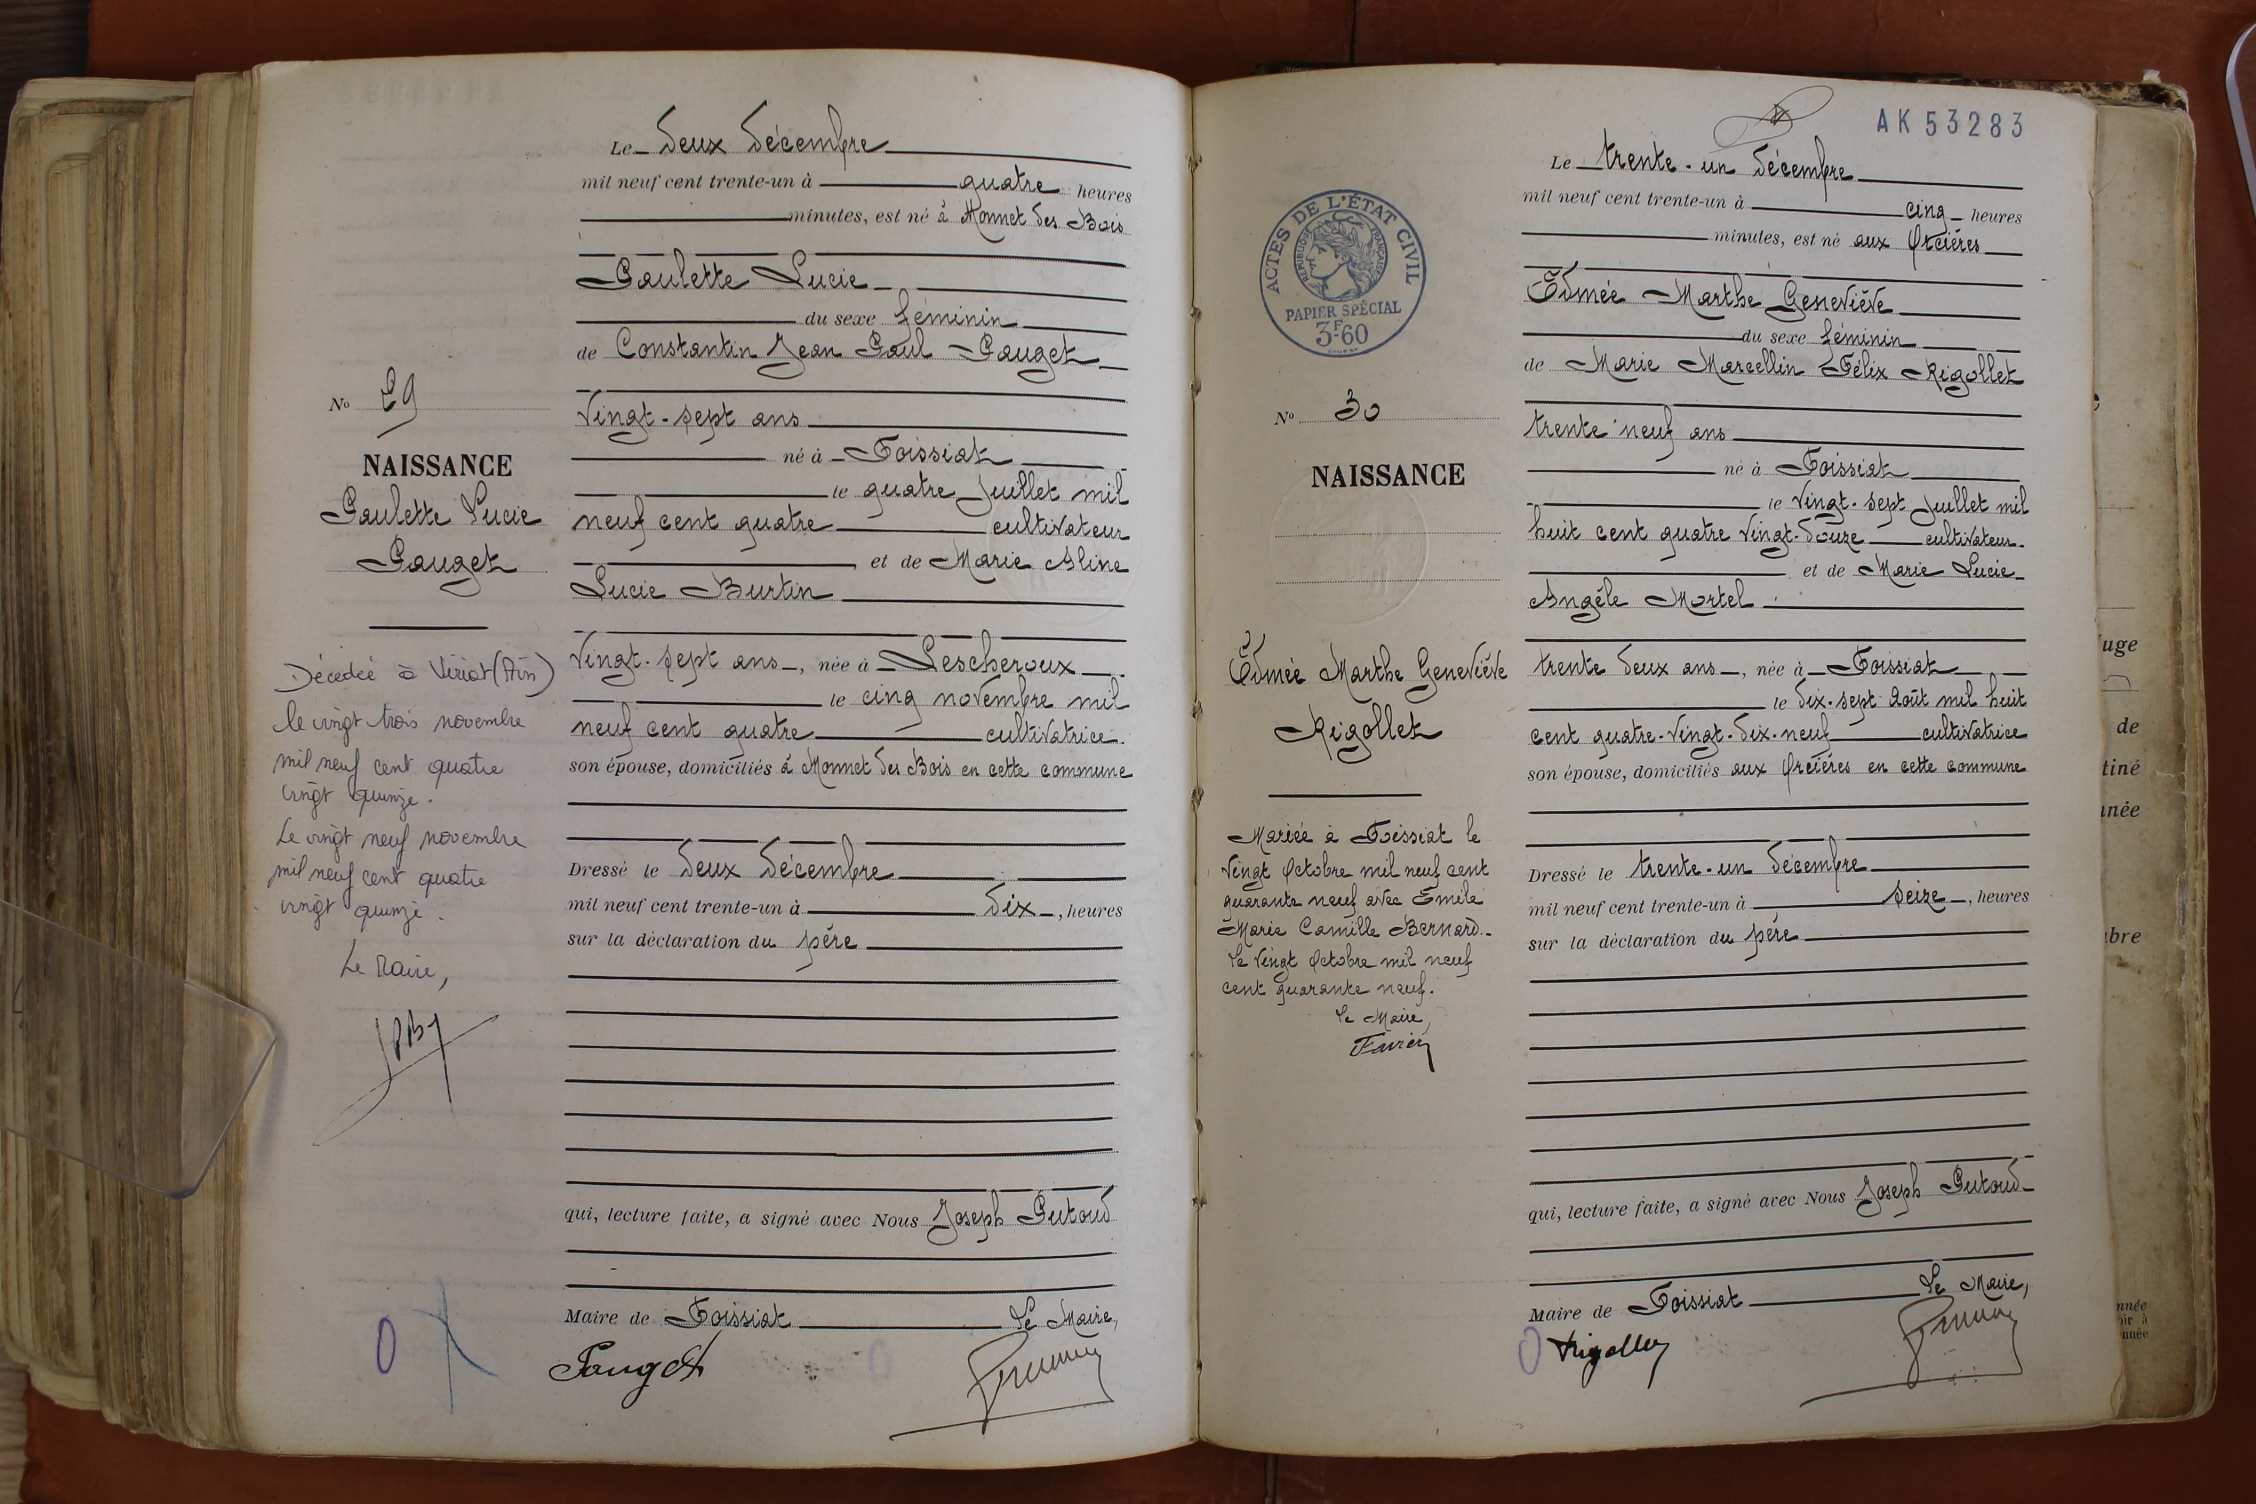 Le deux Décembre
mil neuf cent trente-un à quatre heures
minutes, est né à Monnet des Bois
Paulette Lucie
du sexe féminin
de Constantin Jean Paul Pauget
Vingt-sept ans
né à Foissiat
le quatre Juillet mil
neuf cent quatre cultivateur
et de Marie Aline
Lucie Burtin
Vingt-sept ans, née à Lescheroux
le cinq novembre mil
neuf cent quatre cultivatrice
son épouse, domiciliés à Monnet des Bois en cette commune
Dressé le deux décembre
mil neuf cent trente-un à dix, heures
sur la déclaration du père
qui, lecture faite, a signé avec Nous Joseph Putoud
Maire de Foissiat Le Maire,
Pauget
No 29
NAISSANCE
Paulette Lucie
Pauget
Décédée à Viriat (Ain)
le vingt trois novembre
mil neuf cent quatre
vingt quinze.
Le vingt neuf novembre
mil neuf cent quatre
vingt quinze.
Le Maire,
AK 53283
Le trente-un décembre
mil neuf cent trente-un à cinq heures
minutes, est né aux Orcières
Edmée Marthe Geneviève
du sexe féminin
de Marie Marcellin Félix Rigollet
trente neuf ans
né à Foissiat
le Vingt-sept Juillet mil
huit cent quatre vingt-douze cultivateur
et de Marie Lucie
Angèle Mortel
trente deux ans, née à Foissiat
le dix-sept Août mil huit
cent quatre-vingt-dix-neuf cultivatrice
son épouse, domiciliés aux Orcières en cette commune
Dressé le trente-un décembre
mil neuf cent trente-un à seize, heures
sur la déclaration du père
qui, lecture faite, a signé avec Nous Joseph Putoud
Maire de Foissiat Le Maire,
Rigollet
ACTES DE L'ÉTAT CIVIL
RÉPUBLIQUE FRANÇAISE
PAPIER SPÉCIAL
3F60
No 30
NAISSANCE
Edmée Marthe Geneviève
Rigollet
Mariée à Foissiat le
vingt Octobre mil neuf cent
quarante neuf avec Emile
Marie Camille Bernard.
Le Vingt Octobre mil neuf
cent quarante neuf.
Le Maire,
Favier
uge
de
tiné
nnée
bre
nnée
oir à
nnée